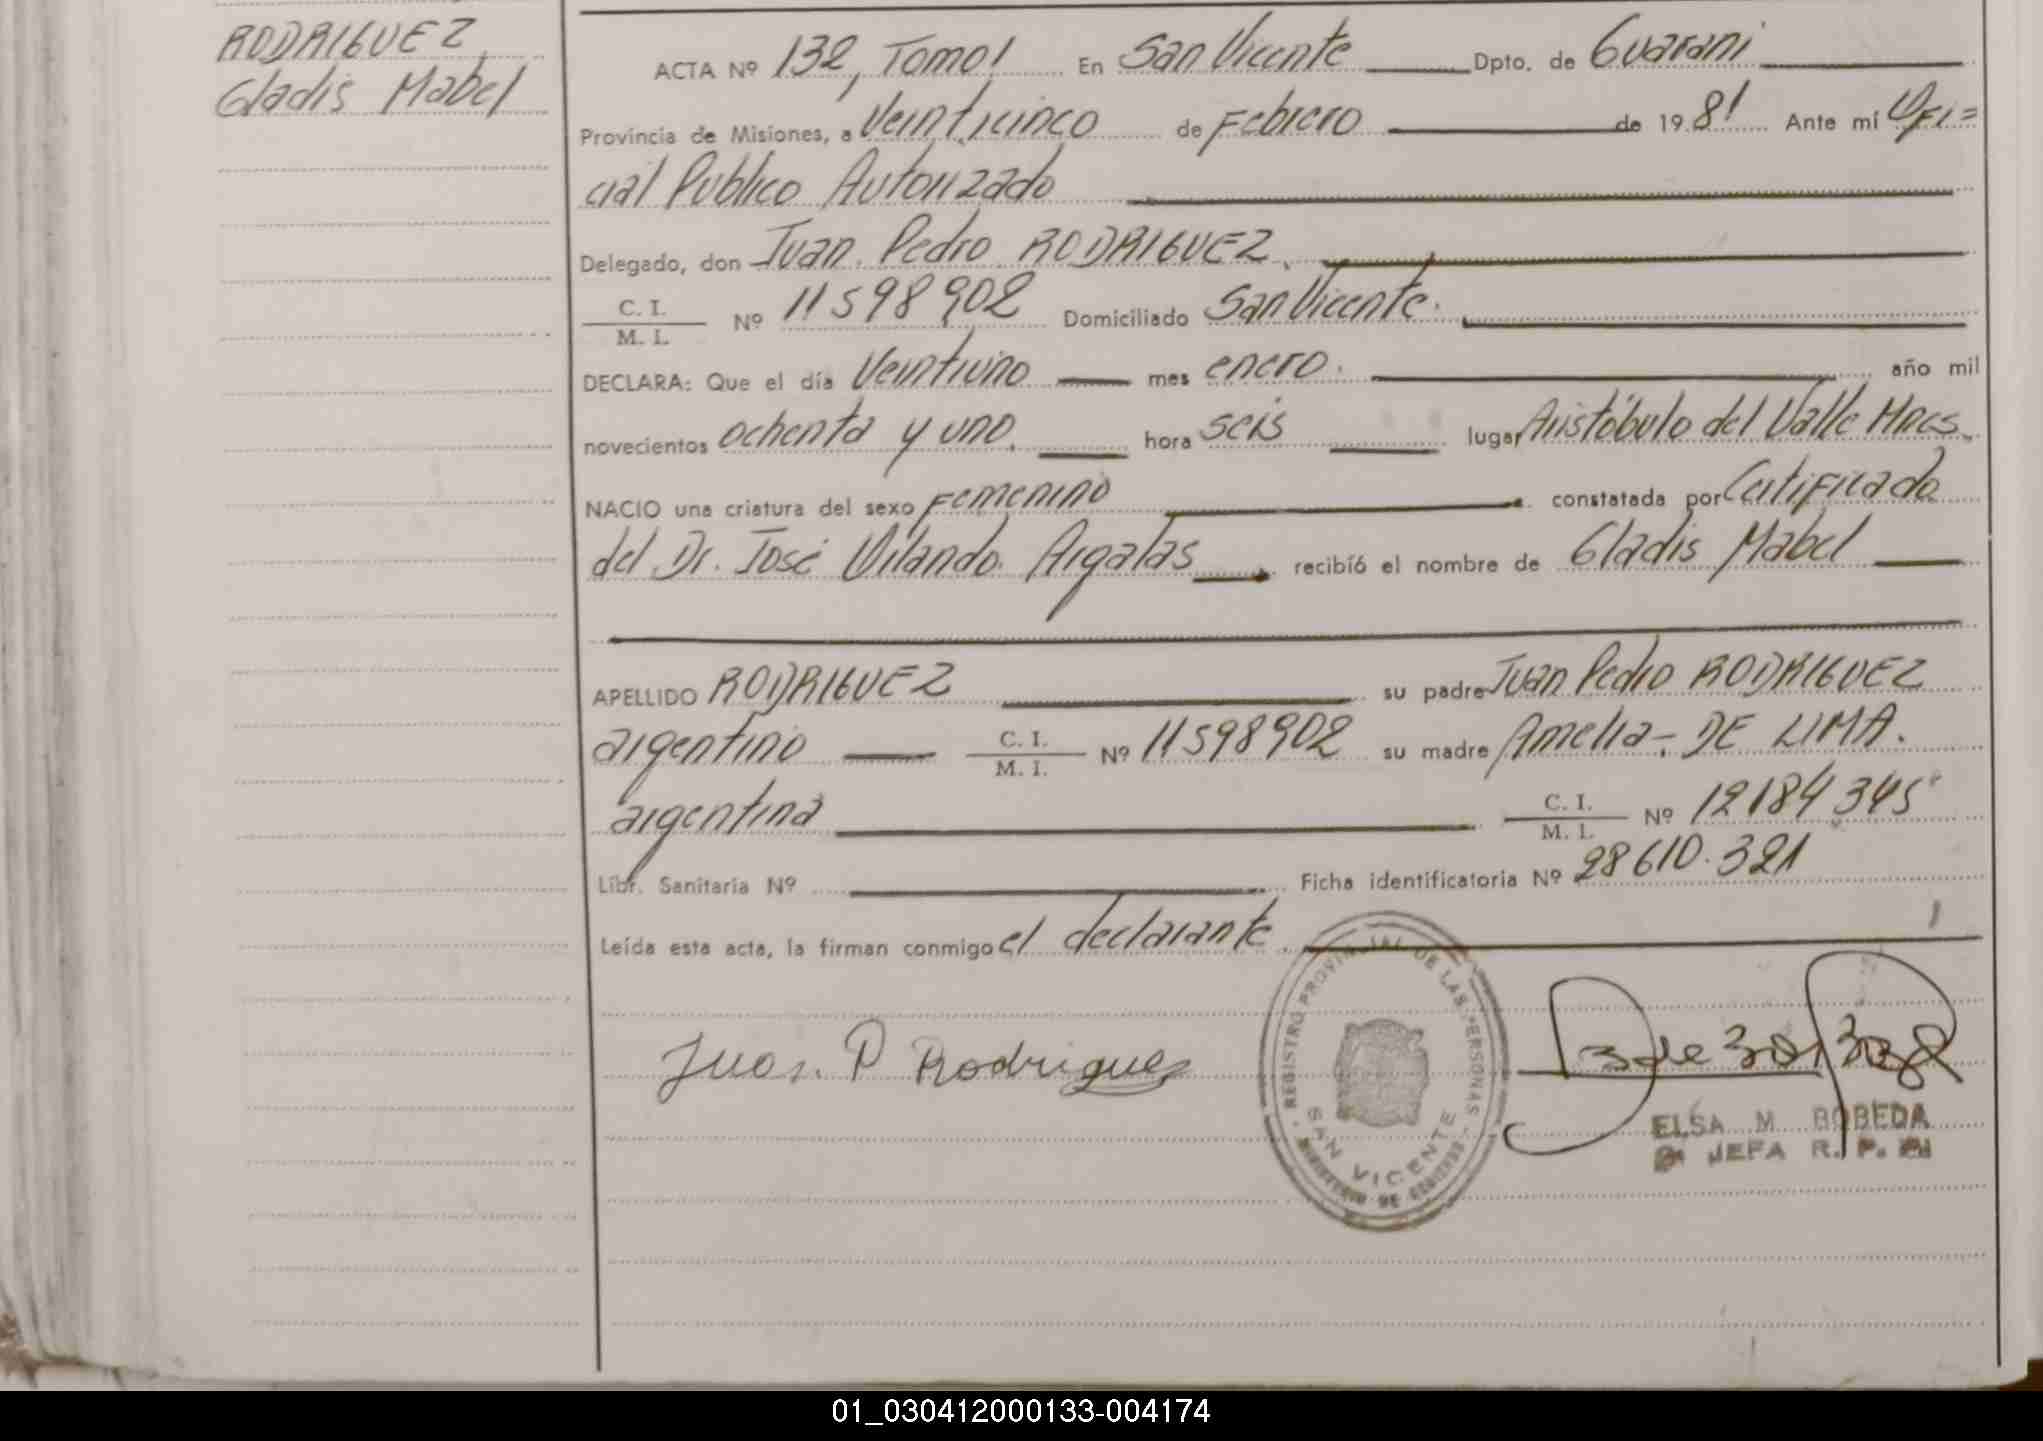 RODRIGUEZ
Gladis Mabel
ACTA Nº 132, Tomo 1 En San Vicente Dpto. de Guarani
Provincia de Misiones, a Veinticinco de Febrero de 1981 Ante mí Ofi=
cial Publico Autorizado
Delegado, don Juan Pedro RODRIGUEZ.
C. I.
M. I. Nº 11598902 Domiciliado San Vicente.
DECLARA: Que el día Veintiuno mes enero. año mil
novecientos ochenta y uno. hora seis lugar Aristóbulo del Valle Mnes.
NACIO una criatura del sexo Femenino constatada por Certificado
del Dr. José Argatas recibió el nombre de Gladis Mabel
APELLIDO RODRIGUEZ su padre Juan Pedro RODRIGUEZ
argentino C. I.
M. I. Nº 11598902 su madre Amelia DE LIMA.
argentina C. I.
M. I. Nº 12184345
Libr. Sanitaria Nº Ficha identificatoria Nº 28610.321
Leída esta acta, la firman conmigo el declarante
Juan. P Rodriguez
REGISTRO PROVINCIAL DE LAS PERSONAS
SAN VICENTE
MINISTERIO DE GOBIERNO
ELSA M BOBEDA
JEFA R. P. P.
01_030412000133-004174